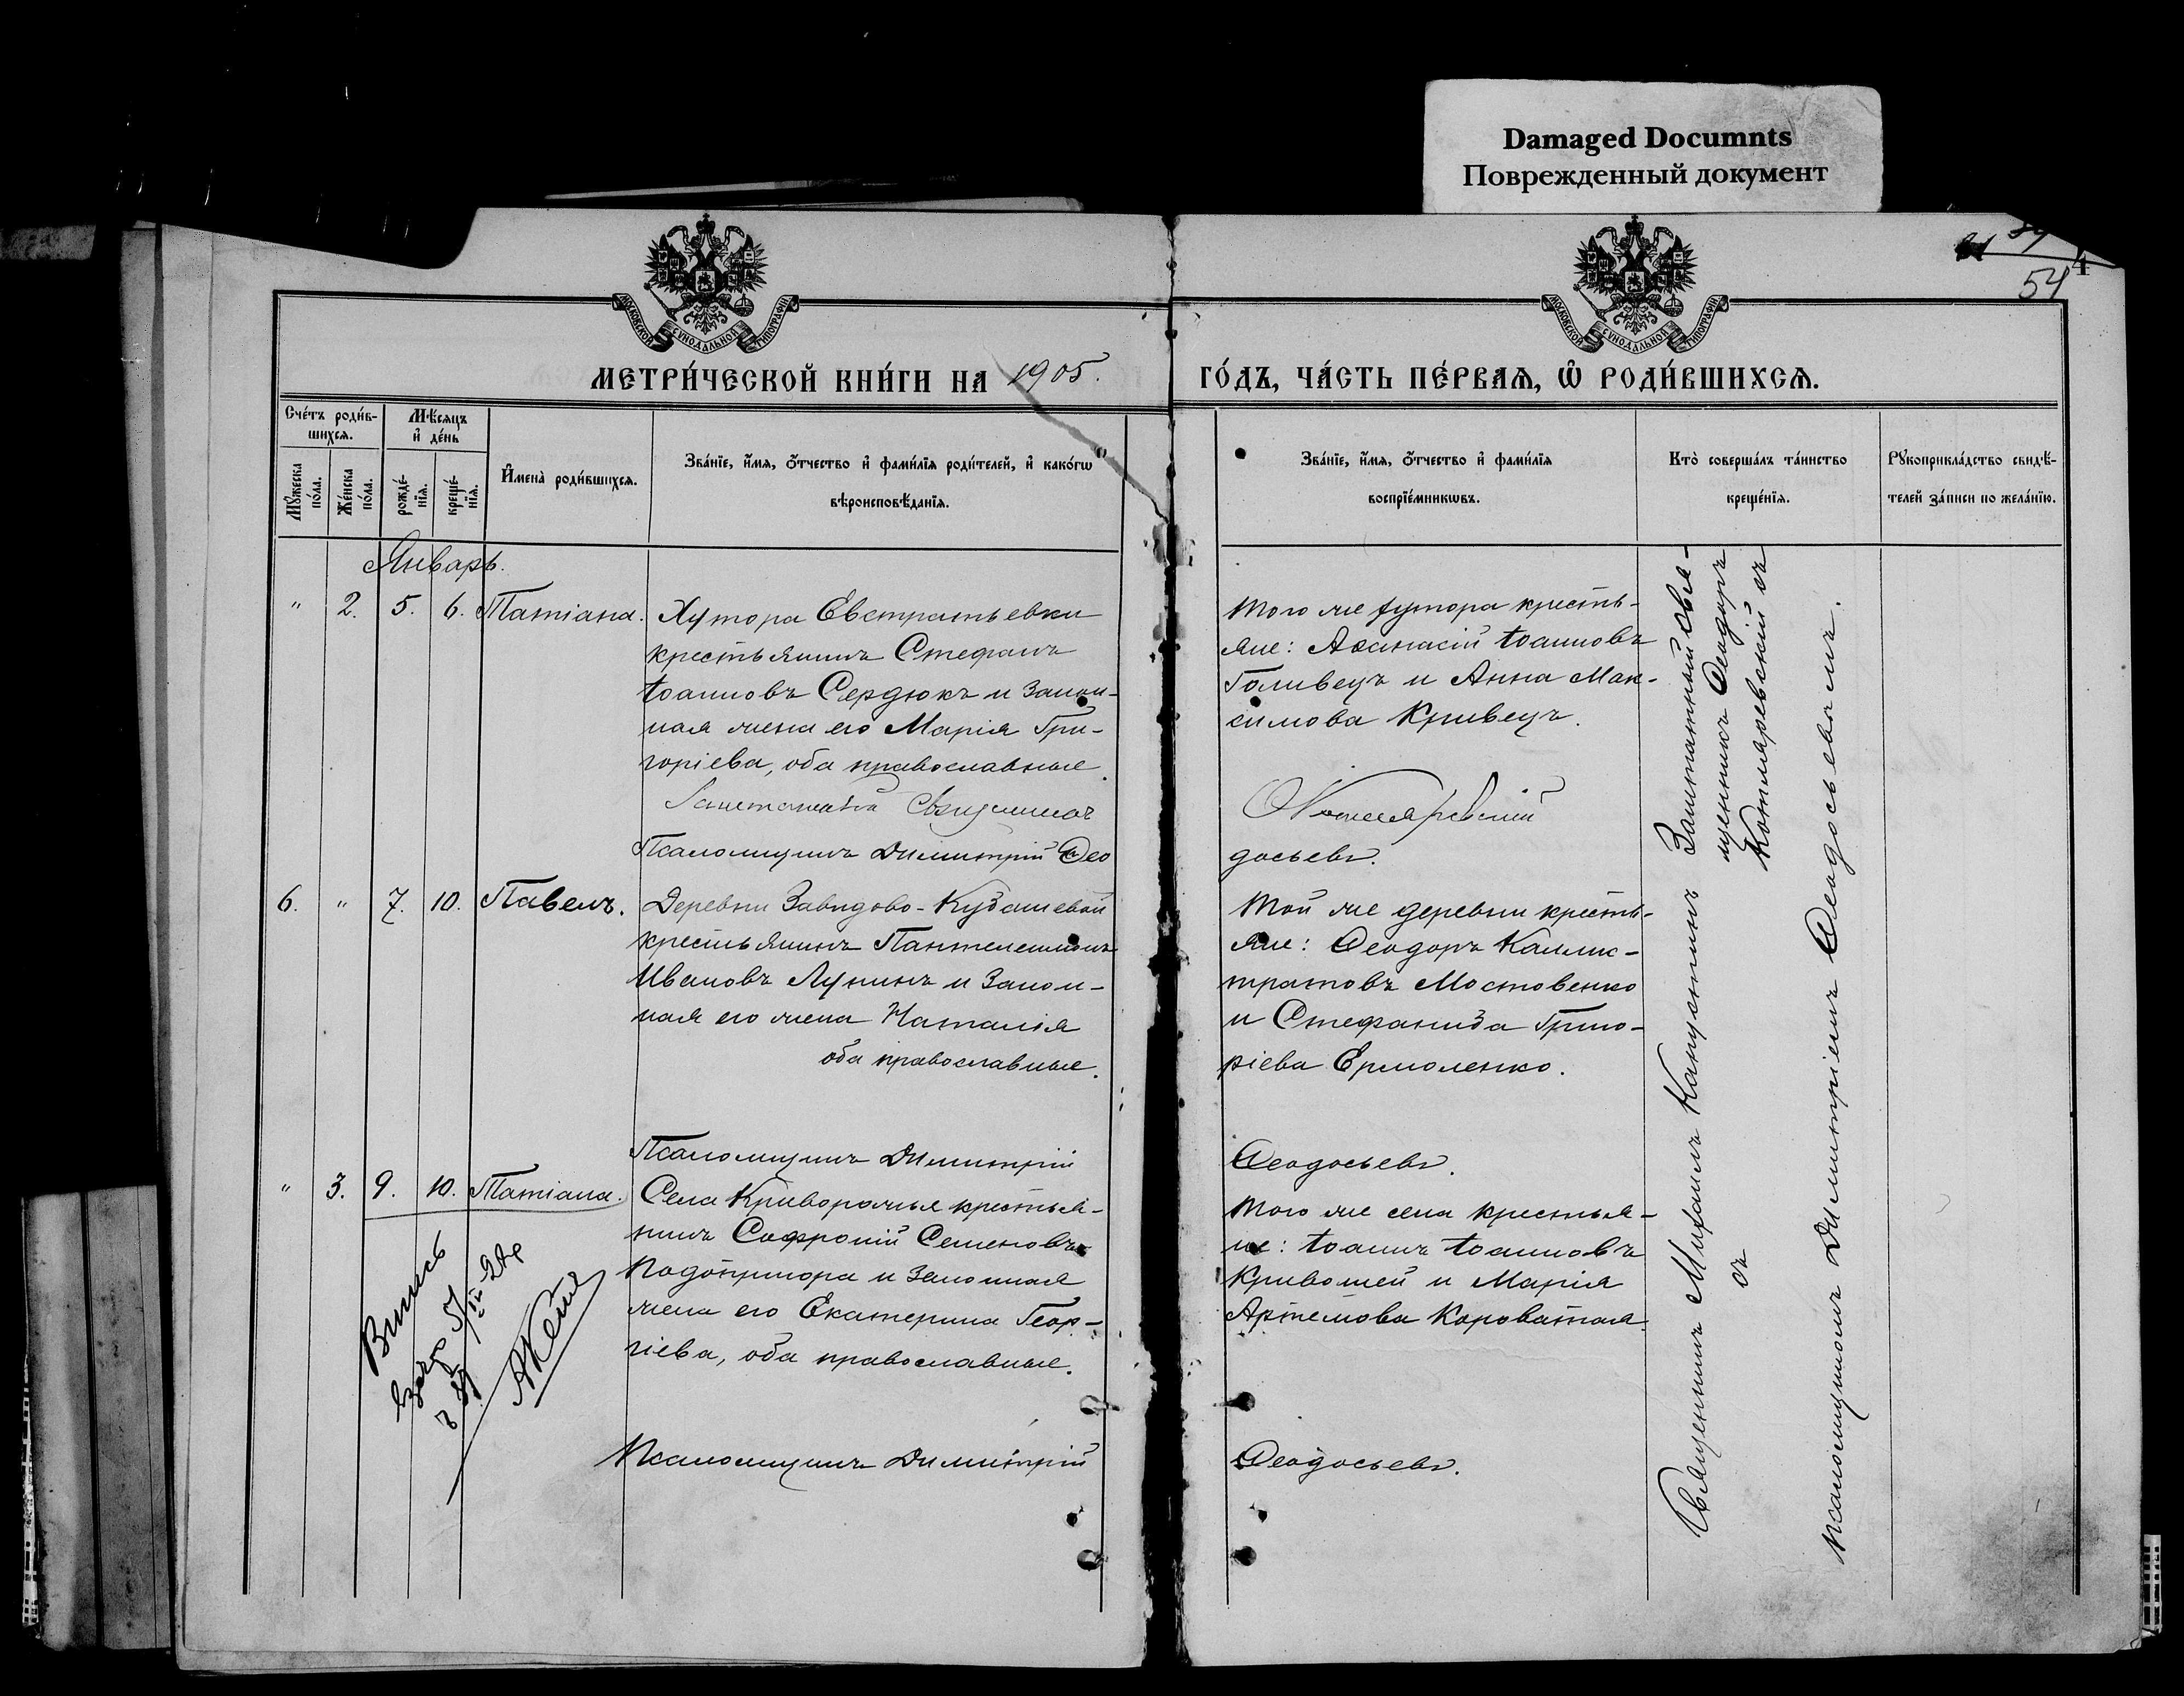 Damaged Documnts
Поврежденный документ
54
4
МОСКОВСКОЙ СѴНОДАЛЬНОЙ ТИПОГРАФІИ
МОСКОВСКОЙ СѴНОДАЛЬНОЙ ТИПОГРАФІИ
МЕТРИ́ЧЕСКОЙ КНИ́ГИ НА 1905.
ГО́ДЪ, ЧА́СТЬ ПЕ́РВАЯ, Ѡ҆ РОДИ́ВШИХСЯ.
Сче́тъ роди́в-
шихся.
Мѣ́сяцъ
и҆ де́нь
Мꙋ́жеска
по́ла.
Же́нска
по́ла.
рожде́-
нїя.
креще́-
нїя.
И҆мена̀ роди́вшихся.
Зва́нїе, и҆́мя, ѻ҆́тчество и҆ фами́лїя роди́телей, и҆ како́гѡ
вѣроисповѣ́данїя.
Зва́нїе, и҆́мя, ѻ҆́тчество и҆ фами́лїя
воспрїе́мникѡвъ.
Кто̀ соверша́лъ та́инство
креще́нїя.
Рꙋкоприкла́дство свидѣ́-
телей за́писи по жела́нїю.
Январь.
" 2. 5. 6. Татіана.
Хутора Евстратьевки
крестьянинъ Стефанъ
Іоанновъ Сердюкъ и закон-
ная жена его Марія Гри-
горіева, оба православные.
Заштатный Священникъ
Псаломщикъ Димитрій Ѳео
Того же хутора кресть-
яне: Аѳанасій Іоанновъ
Голивецъ и Анна Мак-
симова Кривецъ.
Котляревскій
досьевъ.
6. " 7. 10. Павелъ.
Деревни Завидово-Кудашевой
крестьянинъ Пантелеимонъ
Ивановъ Лунинъ и закон-
ная его жена Наталія
оба православные.
Псаломщикъ Димитрій
Той же деревни кресть-
яне: Ѳеодоръ Каллис-
тратовъ Мостовенко
и Стефанида Григо-
ріева Ермоленко.
Ѳеодосьевъ.
" 3. 9. 10. Татіана.
Села Криворожья крестья-
нинъ Софроній Семеновъ
Подопригора и законная
жена его Екатерина Геор-
гіева, оба православные.
Псаломщикъ Димитрій
Того же села крестья-
не: Іоаннъ Іоанновъ
Кривошей и Марія
Артемова Короватая.
Ѳеодосьевъ.
Священникъ Михаилъ Капустинъ Заштатный свя-
щенникъ Ѳеодоръ
Котляревскій съ
съ
псаломщикомъ Димитріемъ Ѳеодосьевымъ.